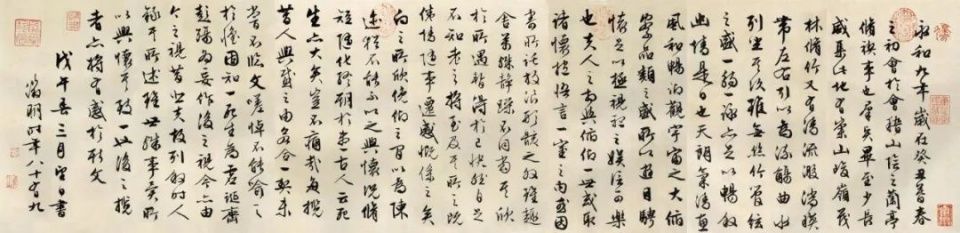 永和九年歲在癸丑暮春
之初會於會稽山陰之蘭亭
脩禊事也羣賢畢至少長
咸集此地有崇山峻嶺茂
林脩竹又有清流激湍映
帶左右引以為流觴曲水
列坐其次雖無絲竹管絃
之盛一觴一詠亦足以暢敘
幽情是日也天朗氣清惠
風和暢仰觀宇宙之大俯
察品類之盛所以遊目騁
懷足以極視聽之娛信可樂
也夫人之相與俯仰一世或取
諸懷抱悟言一室之內或因
寄所託放浪形骸之外雖趣
舍萬殊靜躁不同當其欣
於所遇暫得於己快然自足
不知老之將至及其所之既
倦情隨事遷感慨係之矣
向之所欣俛仰之間以為陳
迹猶不能不以之興懷況脩
短隨化終期於盡古人云死
生亦大矣豈不痛哉每攬
昔人興感之由若合一契未
嘗不臨文嗟悼不能喻之
於懷固知一死生為虛誕齊
彭殤為妄作後之視今亦由
今之視昔悲夫故列敘時人
錄其所述雖世殊事異所
以興懷其致一也後之攬
者亦將有感於斯文
戊午春三月望日書
徵明時年八十又九